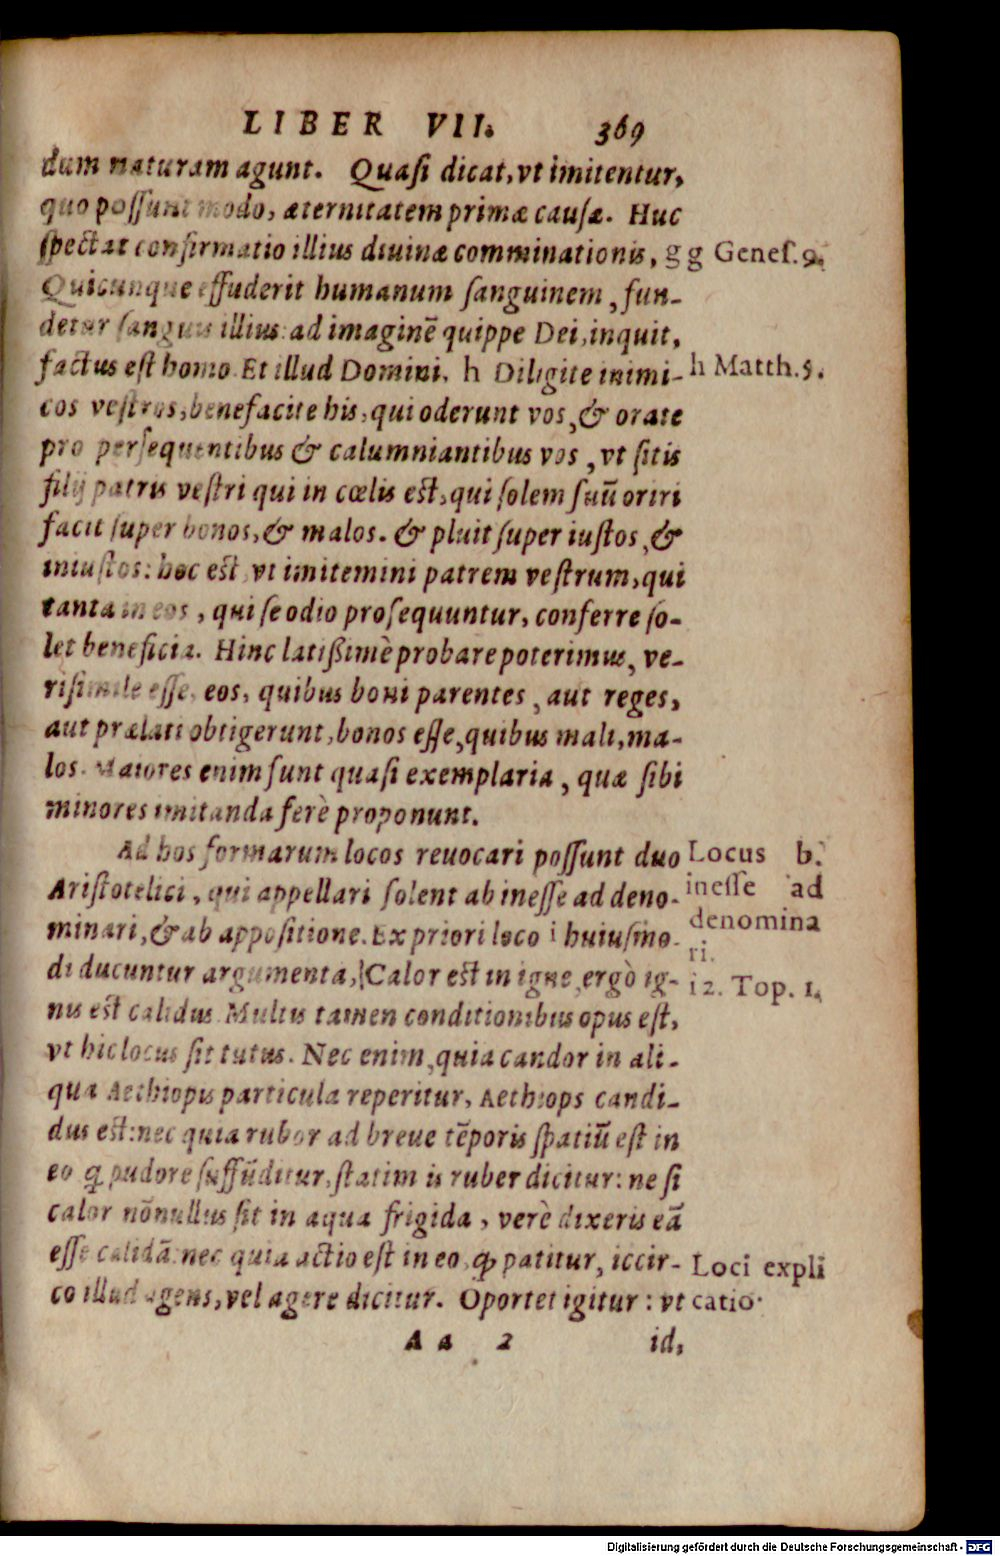 LIBER VII. 369
dum naturam agunt. Quasi dicat, vt imitentur,
quo possunt modo, æternitatem primæ causæ. Huc
spectat confirmatio illius diuinæ comminationis, g
Quicunque effuderit humanum sanguinem, fun-
detur sanguis illius: ad imaginē quippe Dei, inquit,
factus est homo. Et illud Domini, h Diligite inimi-
cos vestros, benefacite his, qui oderunt vos, & orate
pro persequentibus & calumniantibus vos, vt sitis
filij patris vestri qui in cœlis est, qui solem suū oriri
facit super bonos, & malos. & pluit super iustos, &
iniustos: hoc est, vt imitemini patrem vestrum, qui
tanta in eos, qui se odio prosequuntur, conferre so-
let beneficia. Hinc latißimè probare poterimus, ve-
risimile esse, eos, quibus boni parentes, aut reges,
aut prælati obtigerunt, bonos esse, quibus mali, ma-
los. Maiores enim sunt quasi exemplaria, quæ sibi
minores imitanda ferè proponunt.
Ad hos formarum locos reuocari possunt duo
Aristotelici, qui appellari solent ab inesse ad deno-
minari, & ab appositione. Ex priori loco i huiusmo-
di ducuntur argumenta, Calor est in igne, ergò ig-
nis est calidus. Multis tamen conditionibus opus est,
vt hic locus sit tutus. Nec enim, quia candor in ali-
qua Aethiopis particula reperitur, Aethiops candi-
dus est: nec quia rubor ad breue tēporis spatiū est in
eo q pudore suffūditur, statim is ruber dicitur: ne si
calor nōnullus sit in aqua frigida, verè dixeris eā
esse calidā: nec quia actio est in eo, qđ patitur, iccir-
co illud agens, vel agere dicitur. Oportet igitur: vt
Aa 2 id,
g Genes. 9.
h Matth. 5.
Locus b.
inesse ad
denomina
ri.
i 2. Top. 1.
Loci expli
catio.
Digitalisierung gefördert durch die Deutsche Forschungsgemeinschaft - DFG